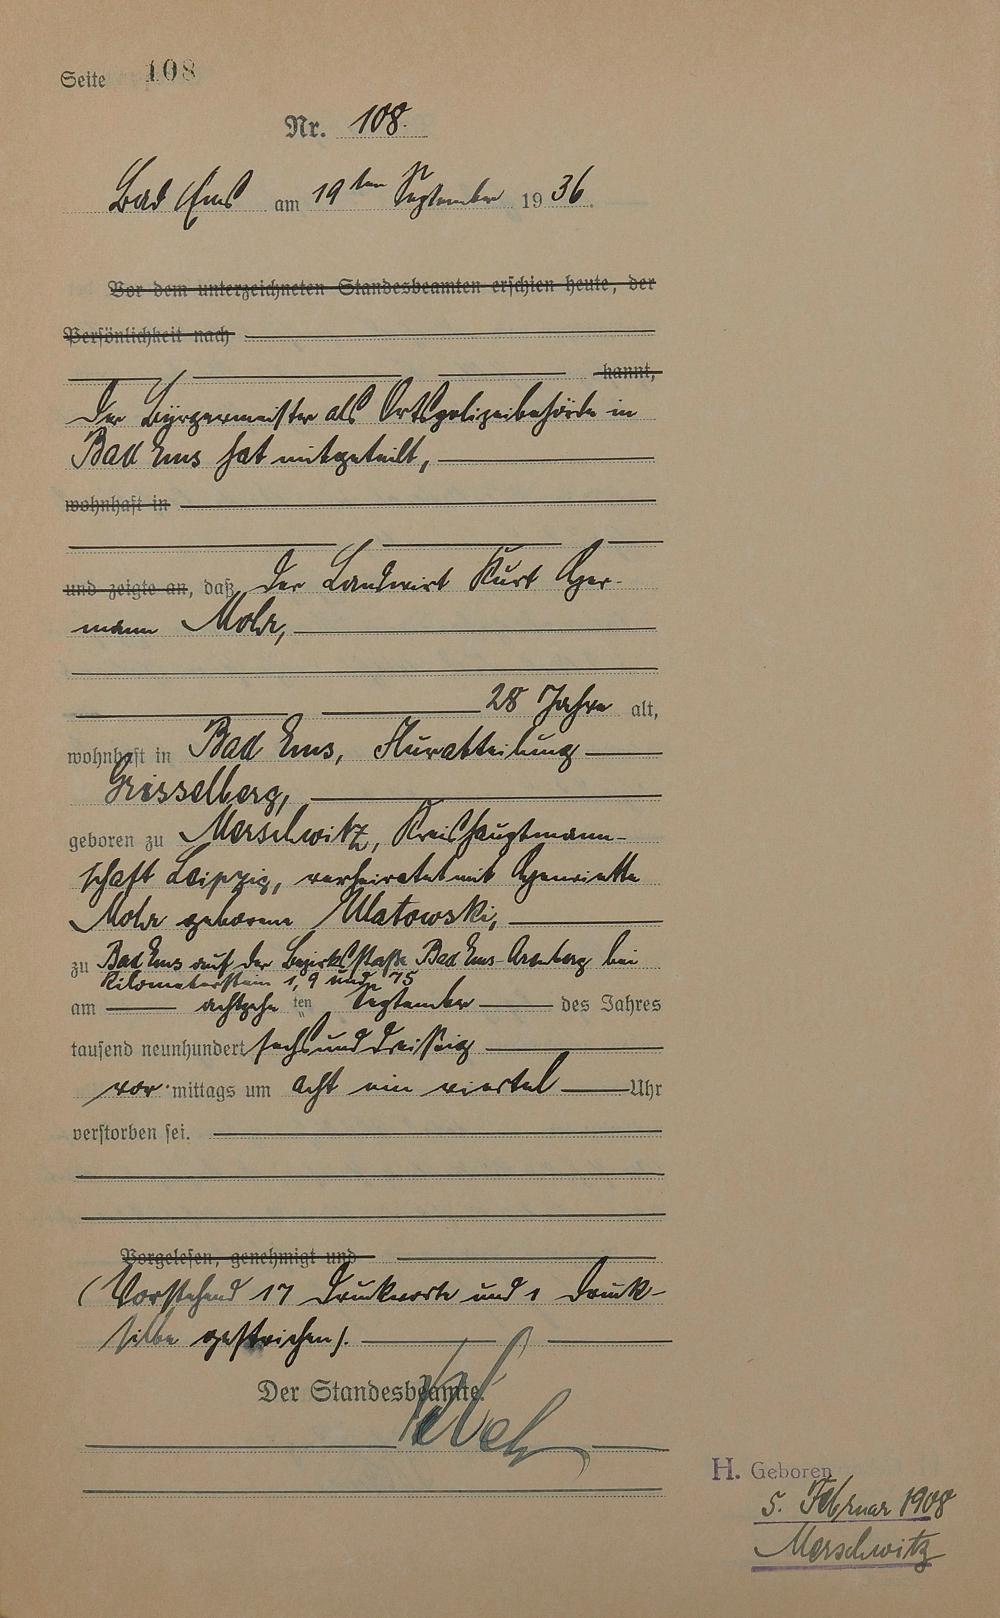 Seite 108
Nr. 108.
Bad Ems am 19ten September 1936.
Vor dem unterzeichneten Standesbeamten erschien heute, der
Persönlichkeit nach
kannt,
Der Bürgermeister als Ortspolizeibehörde in
Bad Ems hat mitgeteilt,
wohnhaft in
und zeigte an, daß der Landwirt Kurt Her-
mann Mohr,
28 Jahre alt,
wohnhaft in Bad Ems, Flurabteilung
Grisselberg,
geboren zu Merschwitz, Kreishauptmann-
schaft Leipzig, verheiratet mit Henriette
Mohr geborene Ulatowski,
zu Bad Ems auf der Bezirksstraße Bad Ems-Arenberg bei
Kilometerstein 1,9 und 75
am achtzehnten September des Jahres
tausend neunhundert sechsunddreissig
vor mittags um acht ein viertel Uhr
verstorben sei.
Vorgelesen, genehmigt und
(Vorstehend 17 Druckworte und 1 Druck-
silbe gestrichen).
Der Standesbeamte.
H. Geboren
5. Februar 1908
Merschwitz